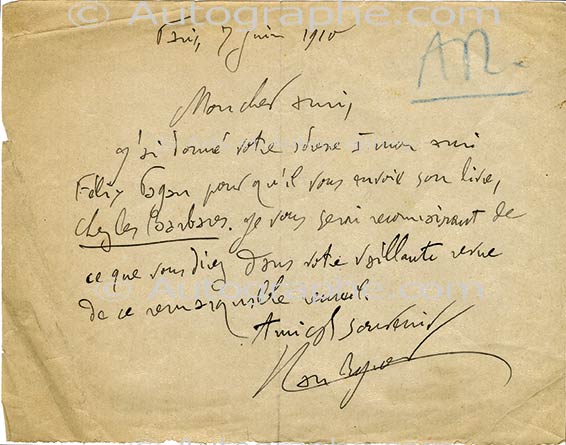 © Autographe.com
Paris, 7 juin 1910
AR.
Mon cher ami,
J'ai donné votre adresse à mon ami
Félix pour qu'il vous envoie son livre,
Chez les Barbares. Je vous serai reconnaissant de
ce que vous direz dans votre vaillante revue
de ce remarquable recueil.
Amical souvenir
© Autographe.com